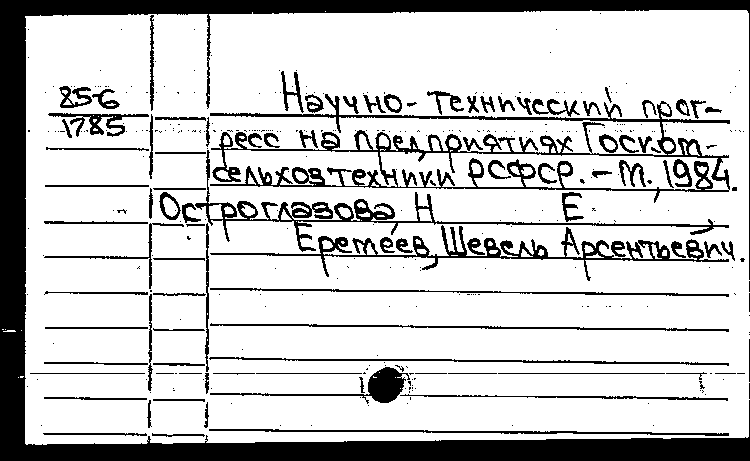 85-6
1785
Научно-технический прог-
ресс на предприятиях Госком-
сельхозтехники РСФСР. - М., 1984.
Остроглазова, Н Е
Еремеев, Шевель Арсентьевич.